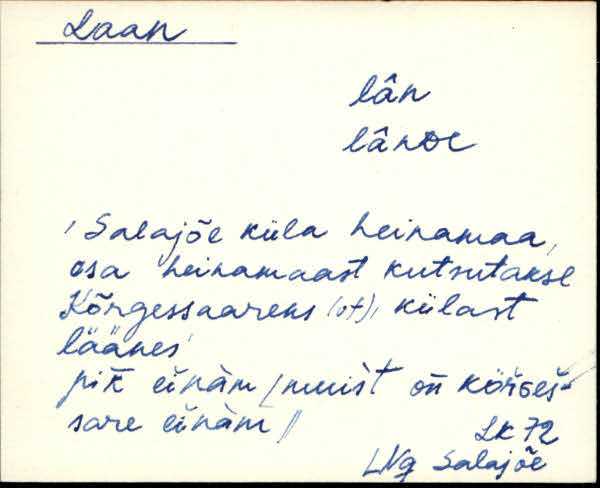 Laan
lân
lânDE
'Salajõe küla heinamaa,
osa heinamaast kutsutakse
Kõrgessaareks (vt), külast
läänes'
pik̄ einäm / muist on̄ kõrGeš-
sare einäm //
LK 72
LNg Salajõe